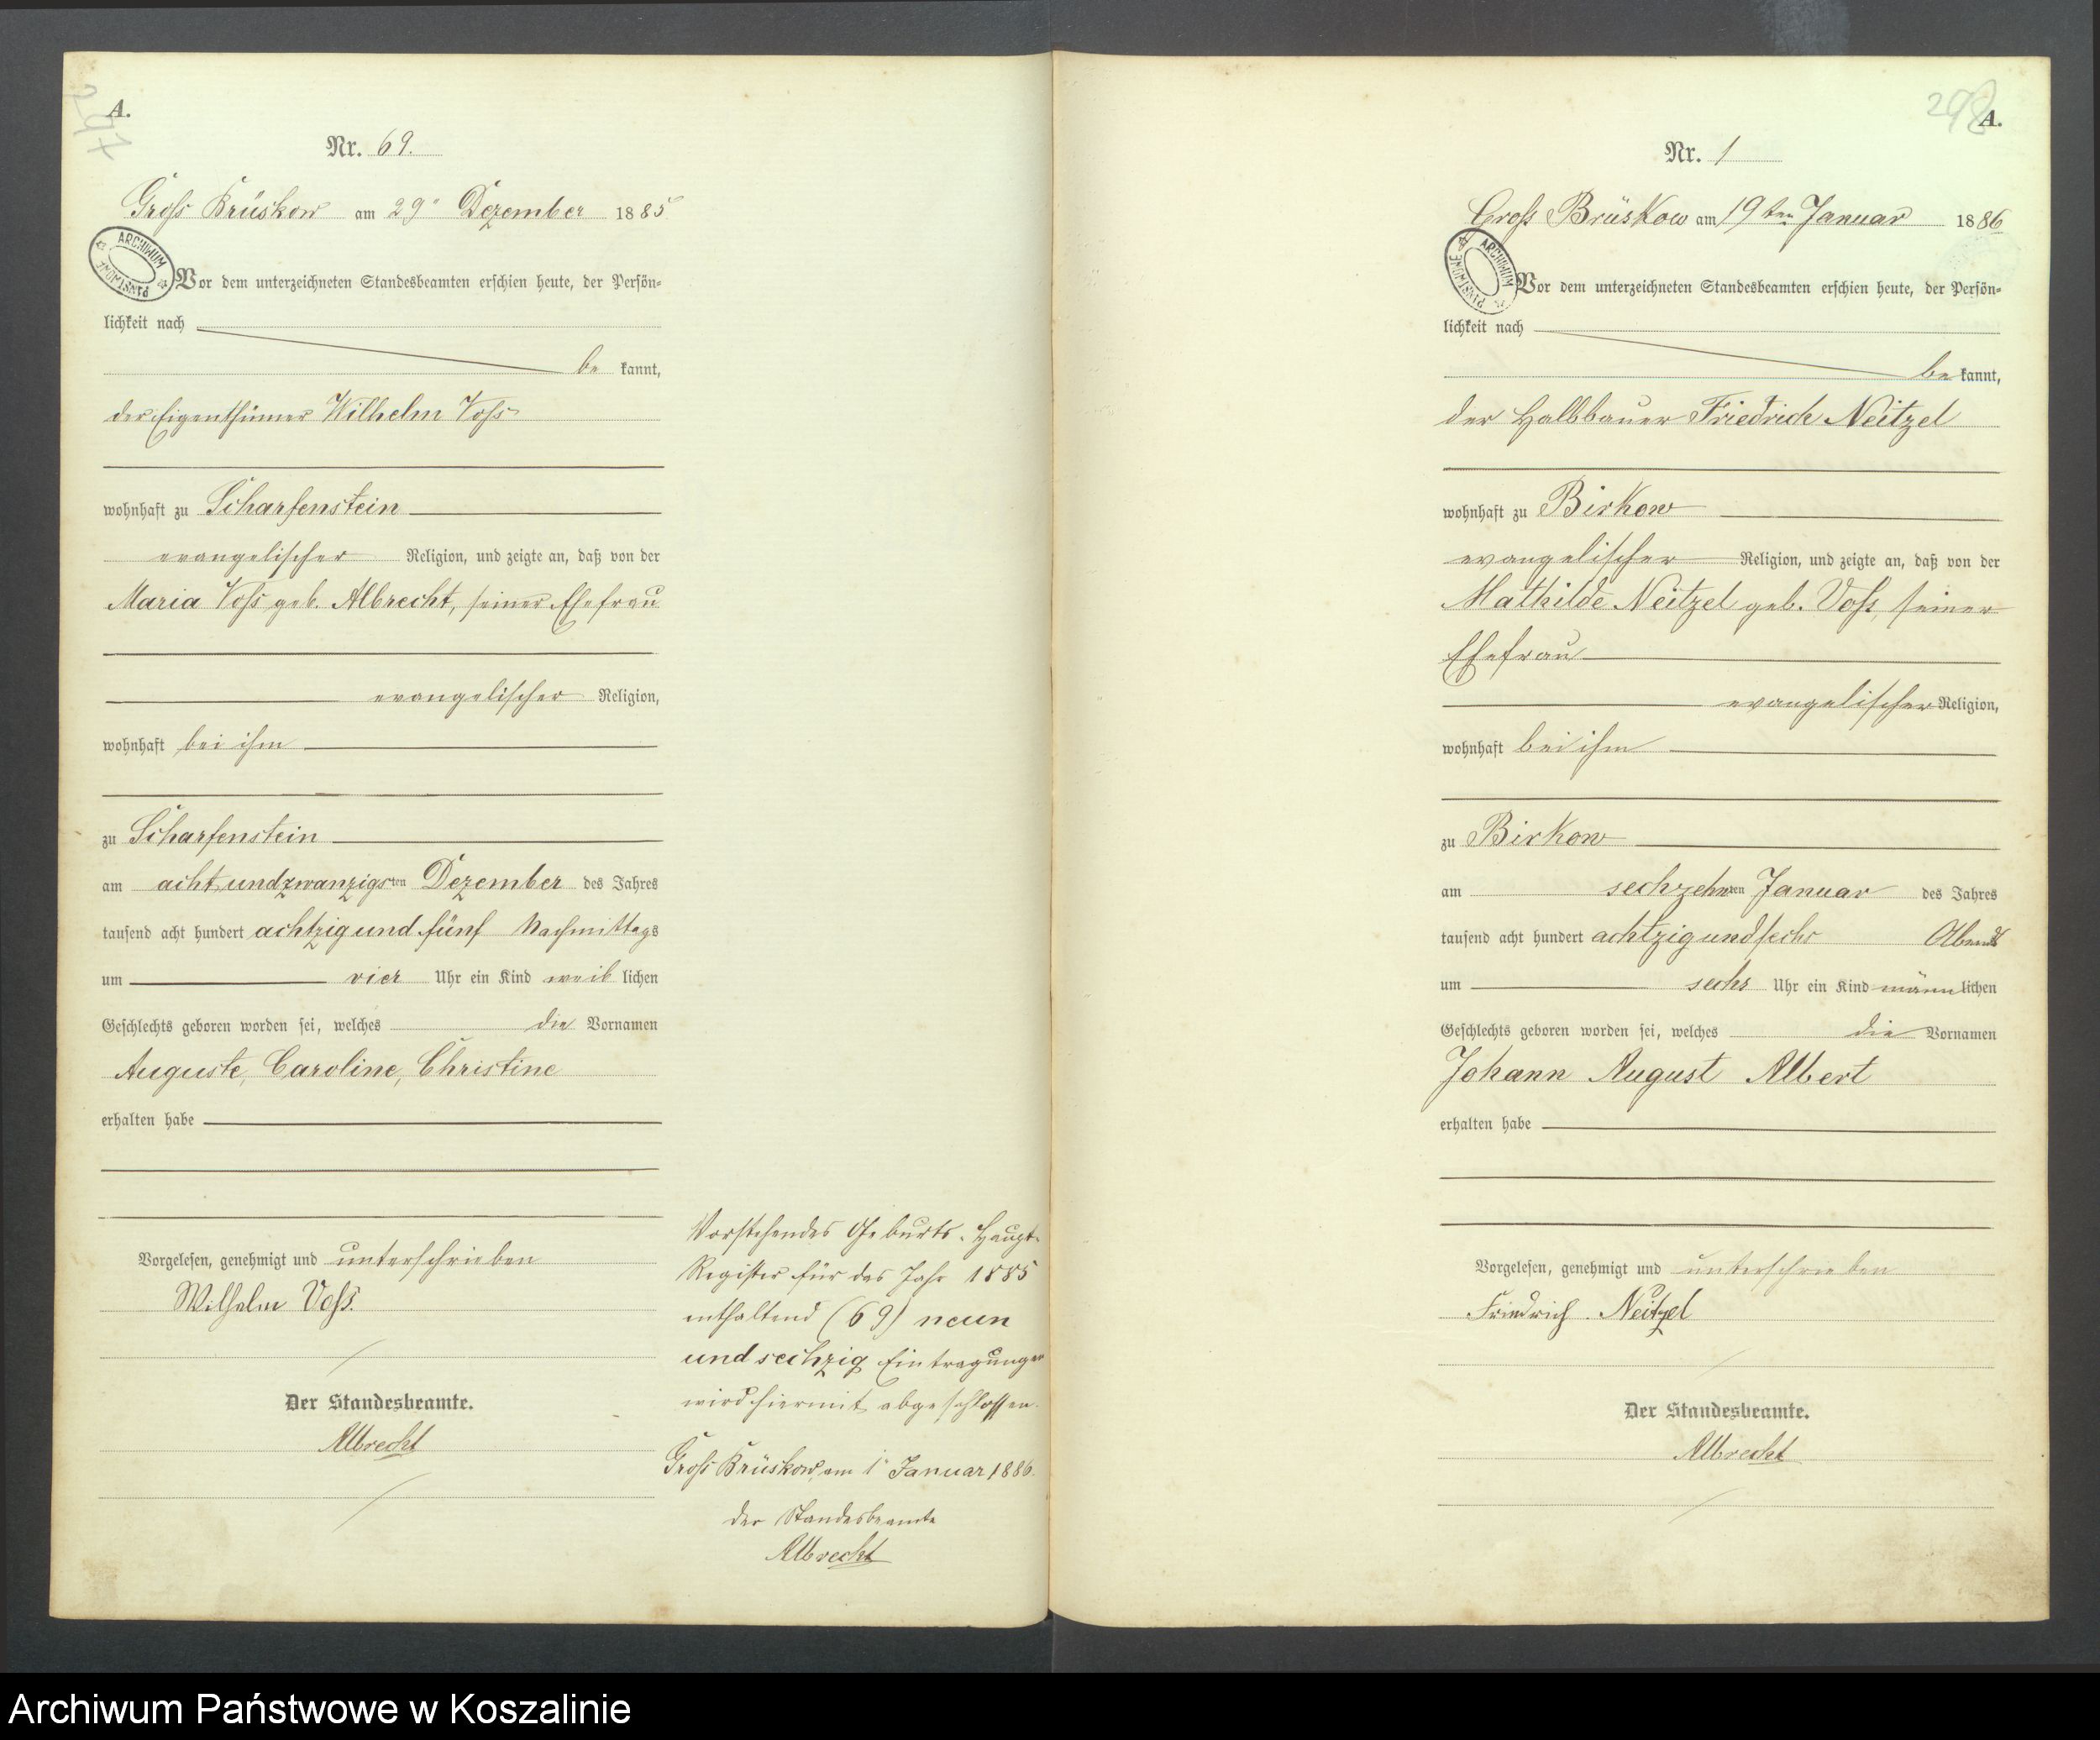 297
A.
Nr. 69.
Gross Brüskow am 29" Dezember 1885
ARCHIWUM PAŃSTWOWE
Vor dem unterzeichneten Standesbeamten erschien heute, der Persön-
lichkeit nach
be kannt,
der Eigenthümer Wilhelm Voss
wohnhaft zu Scharfenstein
evangelischer Religion, und zeigte an, daß von der
Maria Voss geb. Albrecht, seiner Ehefrau
evangelischer Religion,
wohnhaft bei ihm
zu Scharfenstein
am acht und zwanzigsten Dezember des Jahres
tausend acht hundert achtzig und fünf Nachmittags
um vier Uhr ein Kind weib lichen
Geschlechts geboren worden sei, welches die Vornamen
Auguste, Caroline, Christine
erhalten habe
Vorgelesen, genehmigt und unterschrieben
Wilhelm Voß.
Der Standesbeamte.
Albrecht
Vorstehendes Geburts-Haupt-
Register für das Jahr 1885
enthaltend (69) neun
und sechzig Eintragungen
wird hiermit abgeschlossen.
Gross Brüskow, am 1" Januar 1886.
der Standesbeamte
Albrecht
298
A.
Nr. 1
Gross Brüskow am 19ten Januar 1886
ARCHIWUM PAŃSTWOWE
Vor dem unterzeichneten Standesbeamten erschien heute, der Persön-
lichkeit nach
be kannt,
der Halbbauer Friedrich Neitzel
wohnhaft zu Birkow
evangelischer Religion, und zeigte an, daß von der
Mathilde Neitzel geb. Voss, seiner
Ehefrau
evangelischer Religion,
wohnhaft bei ihm
zu Birkow
am sechzehnten Januar des Jahres
tausend acht hundert achtzig und sechs Abends
um sechs Uhr ein Kind männlichen
Geschlechts geboren worden sei, welches die Vornamen
Johann August Albert
erhalten habe
Vorgelesen, genehmigt und unterschrieben
Friedrich Neitzel
Der Standesbeamte.
Albrecht
Archiwum Państwowe w Koszalinie